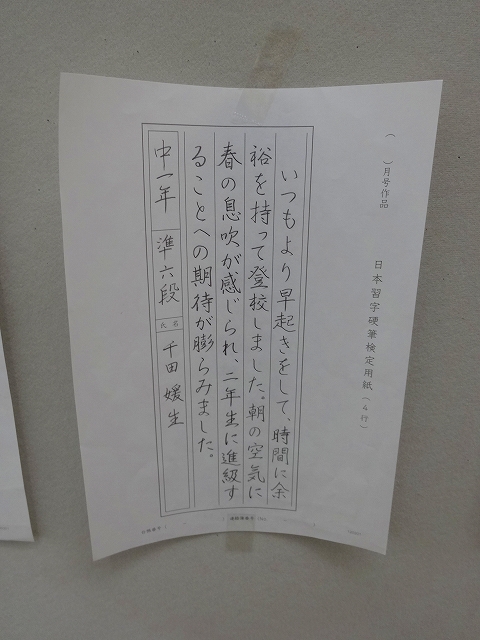 （　）月号作品
日本習字硬筆検定用紙（4行）
いつもより早起きをして、時間に余
裕を持って登校しました。朝の空気に
春の息吹が感じられ、二年生に進級す
ることへの期待が膨らみました。
中一年 準六段 氏名 千田媛生